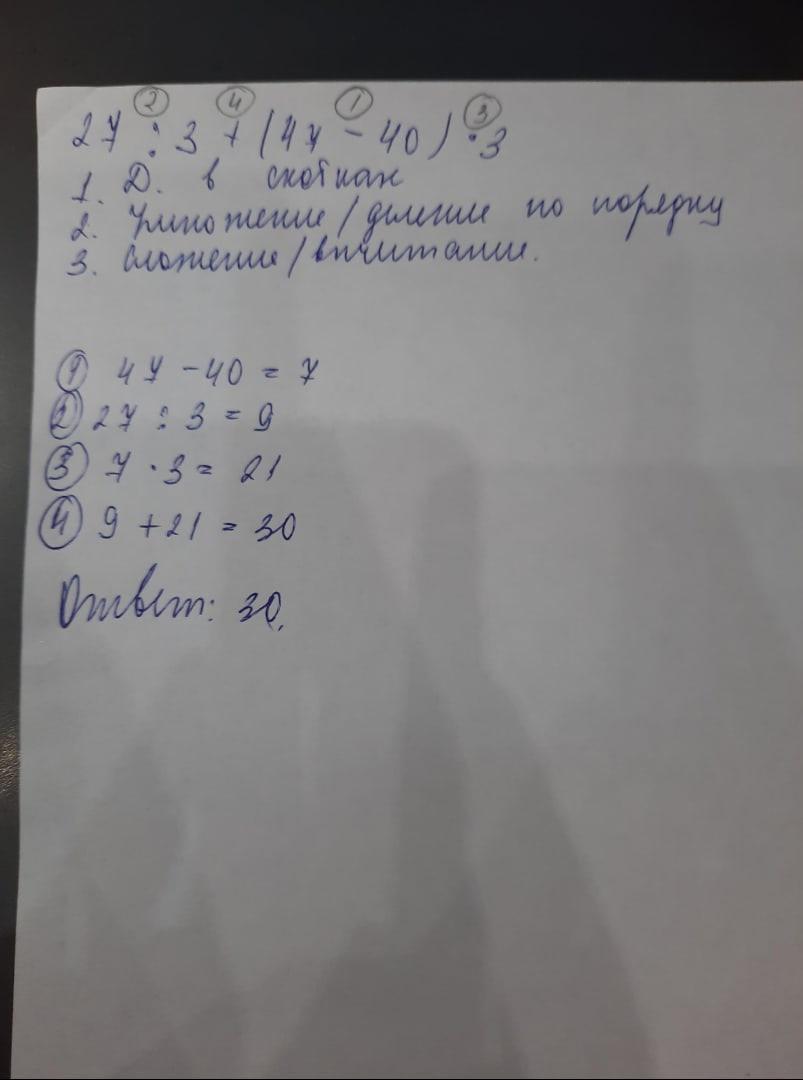 ② ④ ① ③
27 : 3 + (47 - 40) · 3
1. Д. в скобках
2. Умножение/деление по порядку
3. Сложение/вычитание.
① 47 - 40 = 7
② 27 : 3 = 9
③ 7 · 3 = 21
④ 9 + 21 = 30
Ответ: 30.